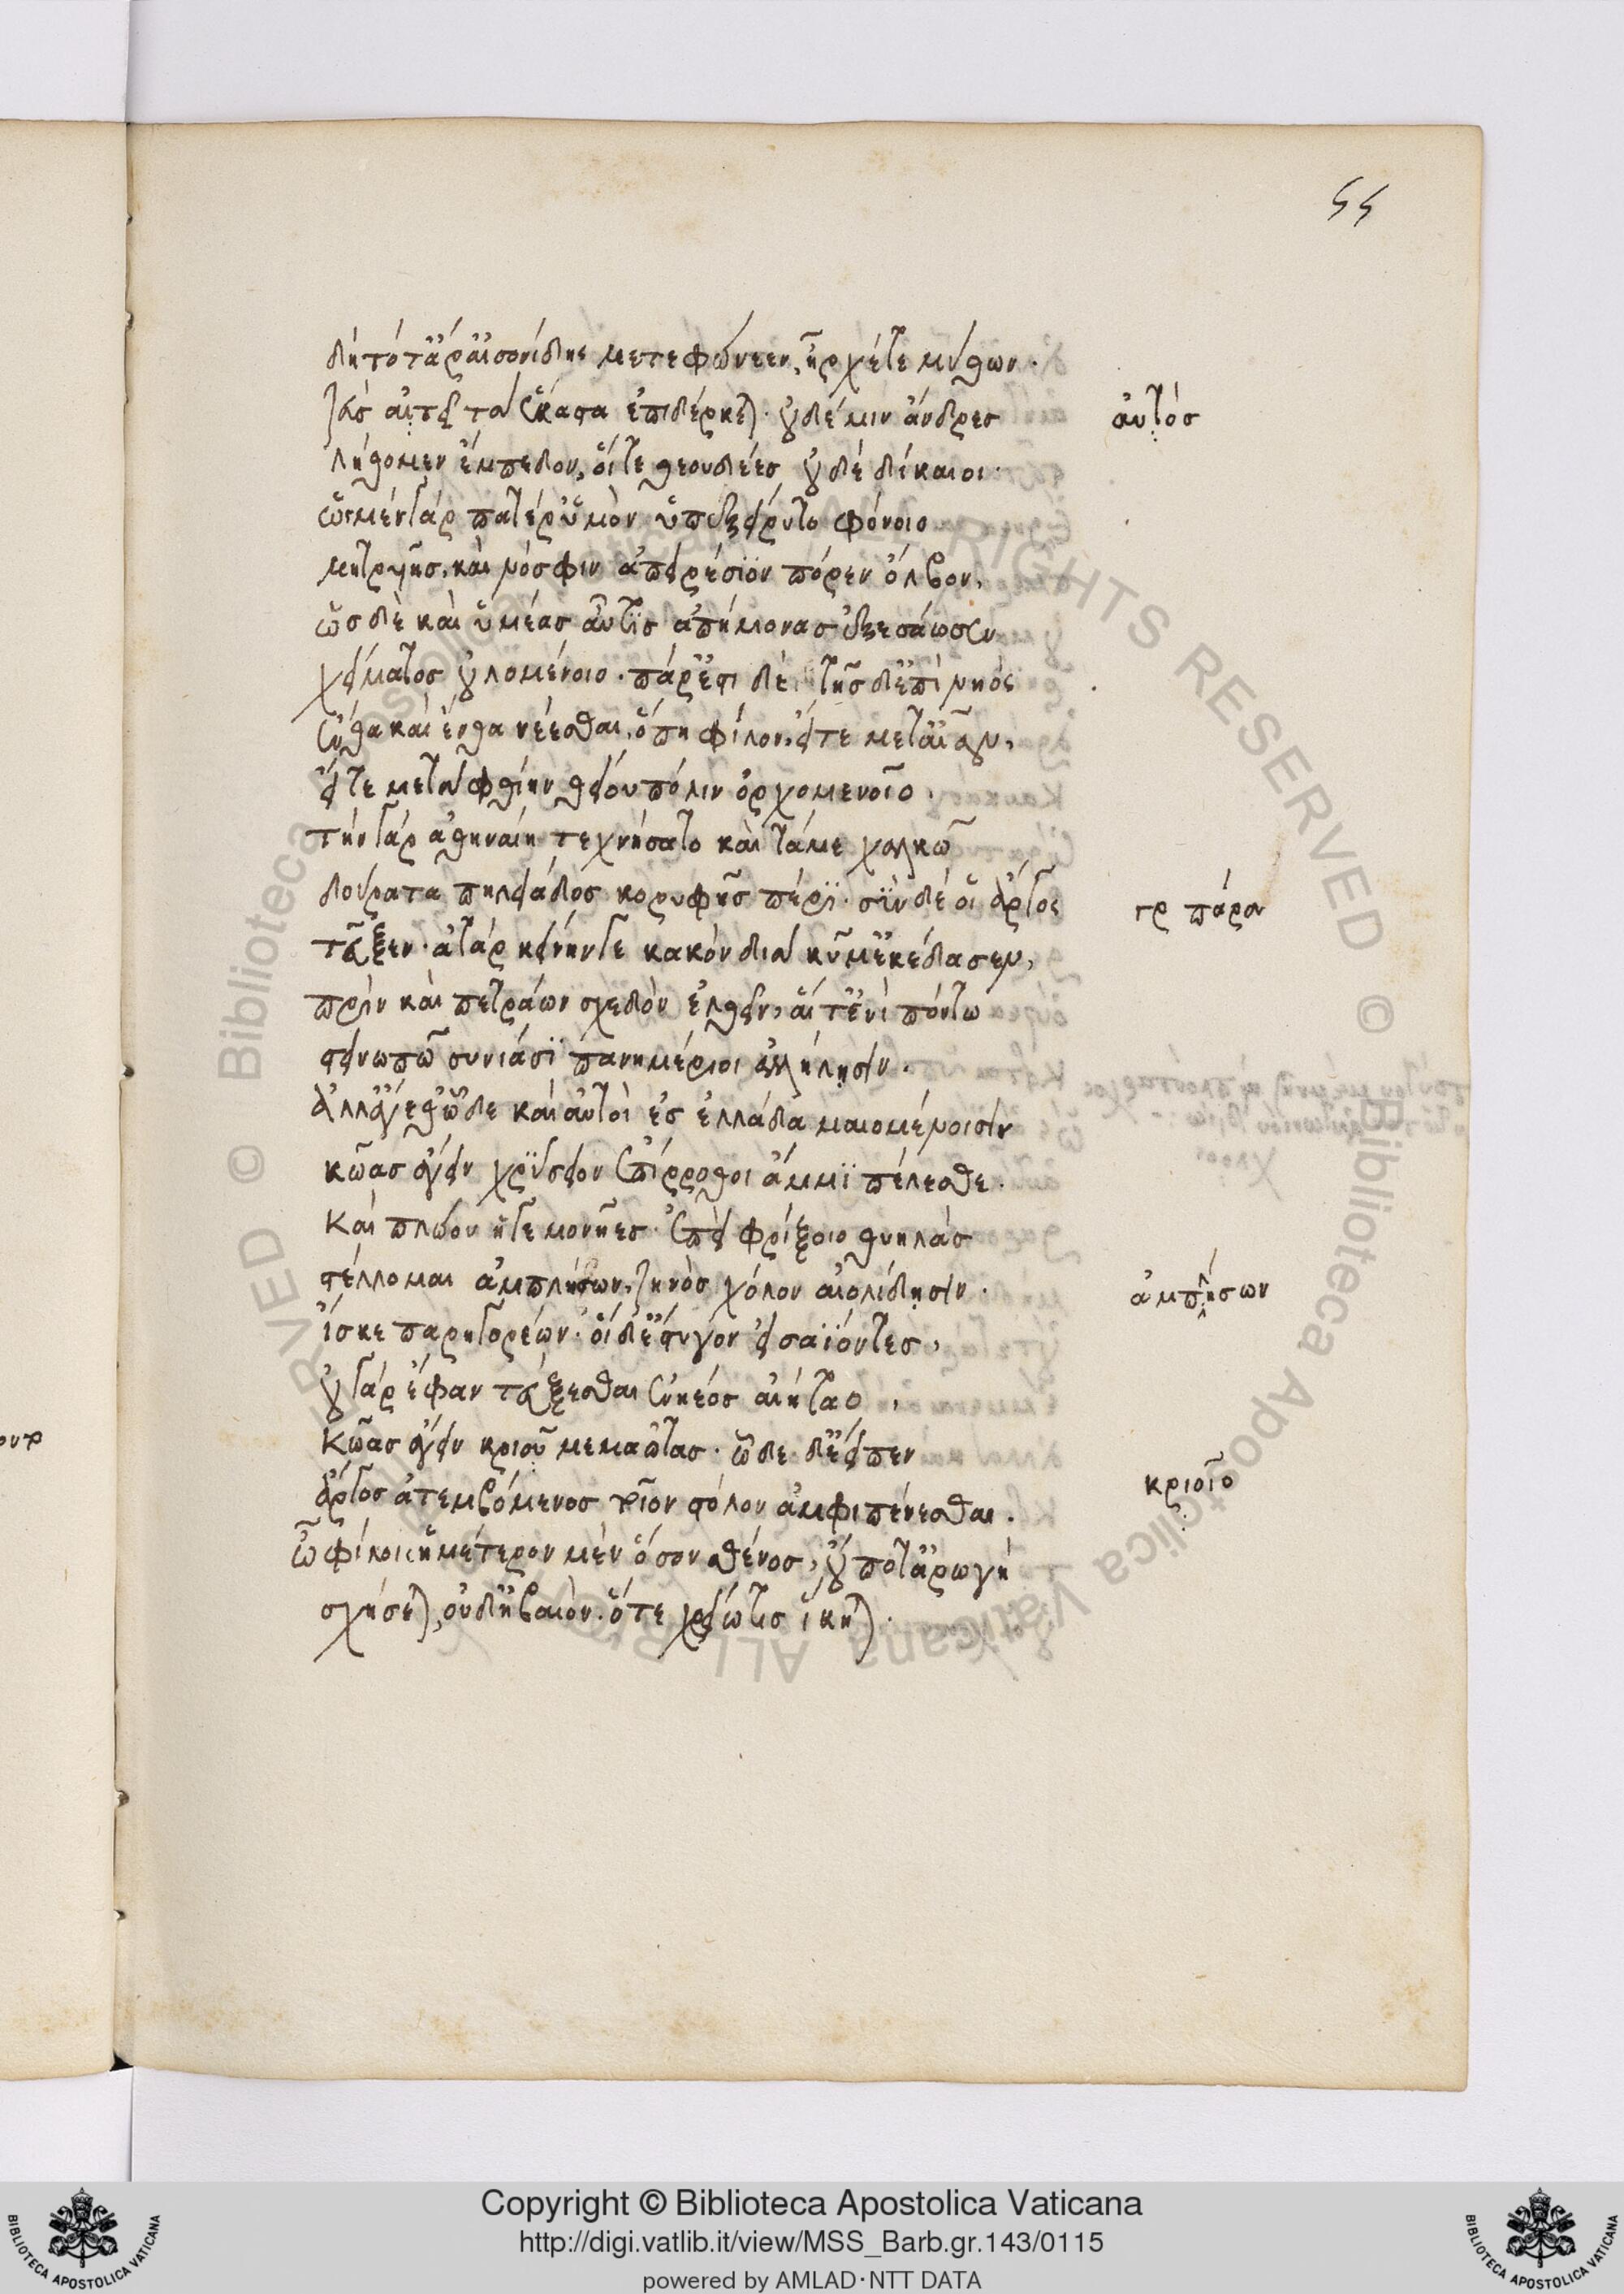 55
δὴ τότ' ἄρ' αἰσονίδης μετεφώνεεν, ἦρχέ τε μύθων.
ζεὺς αὐτὸς τὰ ἕκαστα ἐπιδέρκεται. οὐδέ μιν ἄνδρες αὐτὸς
λήθομεν ἔμπεδον, οἵ τε θεουδέες οὐδὲ δίκαιοι.
ὡς μὲν γὰρ πατέρ' ὑμὸν ὑπεξείρυτο φόνοιο
μητρυῆς, καὶ νόσφιν ἀπειρέσιον πόρεν ὄλβον,
ὣς δὲ καὶ ὑμέας αὖτις ἀπήμονας ἐξεσάωσεν
χείματος οὐλομένοιο. πάρεστι δὲ τῆσδ' ἐπὶ νηὸς
ἔνθα καὶ ἔνθα νέεσθαι, ὅπη φίλον, εἴτε μετ' αἶαν,
εἴτε μετὰ φθίην θείου πόλιν ὀρχομενοῖο.
τὴν γὰρ ἀθηναίη τεχνήσατο καὶ τάμε χαλκῷ
δούρατα πηλιάδος κορυφῆς πέρι. σὺν δέ οἱ ἄργος γρ πάρα
τεῦξεν. ἀτὰρ κείνην γε κακὸν διὰ κῦμ' ἐκέδασσεν,
πρὶν καὶ πετράων σχεδὸν ἐλθεῖν, αἵ τ' ἐνὶ πόντω
στεινωπῷ συνιᾶσι πανημέριοι ἀλλήλησιν.
ἀλλ' ἄγεθ' ὧδε καὶ αὐτοὶ ἐς ἑλλάδα μαιομένοισιν
κῶας ἄγειν χρύσειον ἐπίρροθοι ἄμμι πέλεσθε.
καὶ πλόου ἡγεμονῆες. ἐπεὶ φρίξοιο θυηλὰς
στέλλομαι ἀμπλήσων, ζηνὸς χόλον αἰολίδησιν. ἀμπλήσων
ἴσκε παρηγορέων. οἱ δ' ἔστυγον εἰσαΐοντες,
οὐ γὰρ ἔφαν τεύξεσθαι ἐνηέος αἰήταο,
κῶας ἄγειν κριοῦ μεμαῶτας. ὧδε δ' ἔειπεν κριοῖο
ἄργος ἀτεμβόμενος τοῖον στόλον ἀμφιπένεσθαι.
ὦ φίλοι ἡμέτερον μὲν ὅσον σθένος, οὔ ποτ' ἀρωγὴ
σχήσεται, οὐδ' ἠβαιὸν. ὅτε χρειώ τις ἵκηται.
ουρ
Copyright © Biblioteca Apostolica Vaticana
http://digi.vatlib.it/view/MSS_Barb.gr.143/0115
powered by AMLAD·NTT DATA